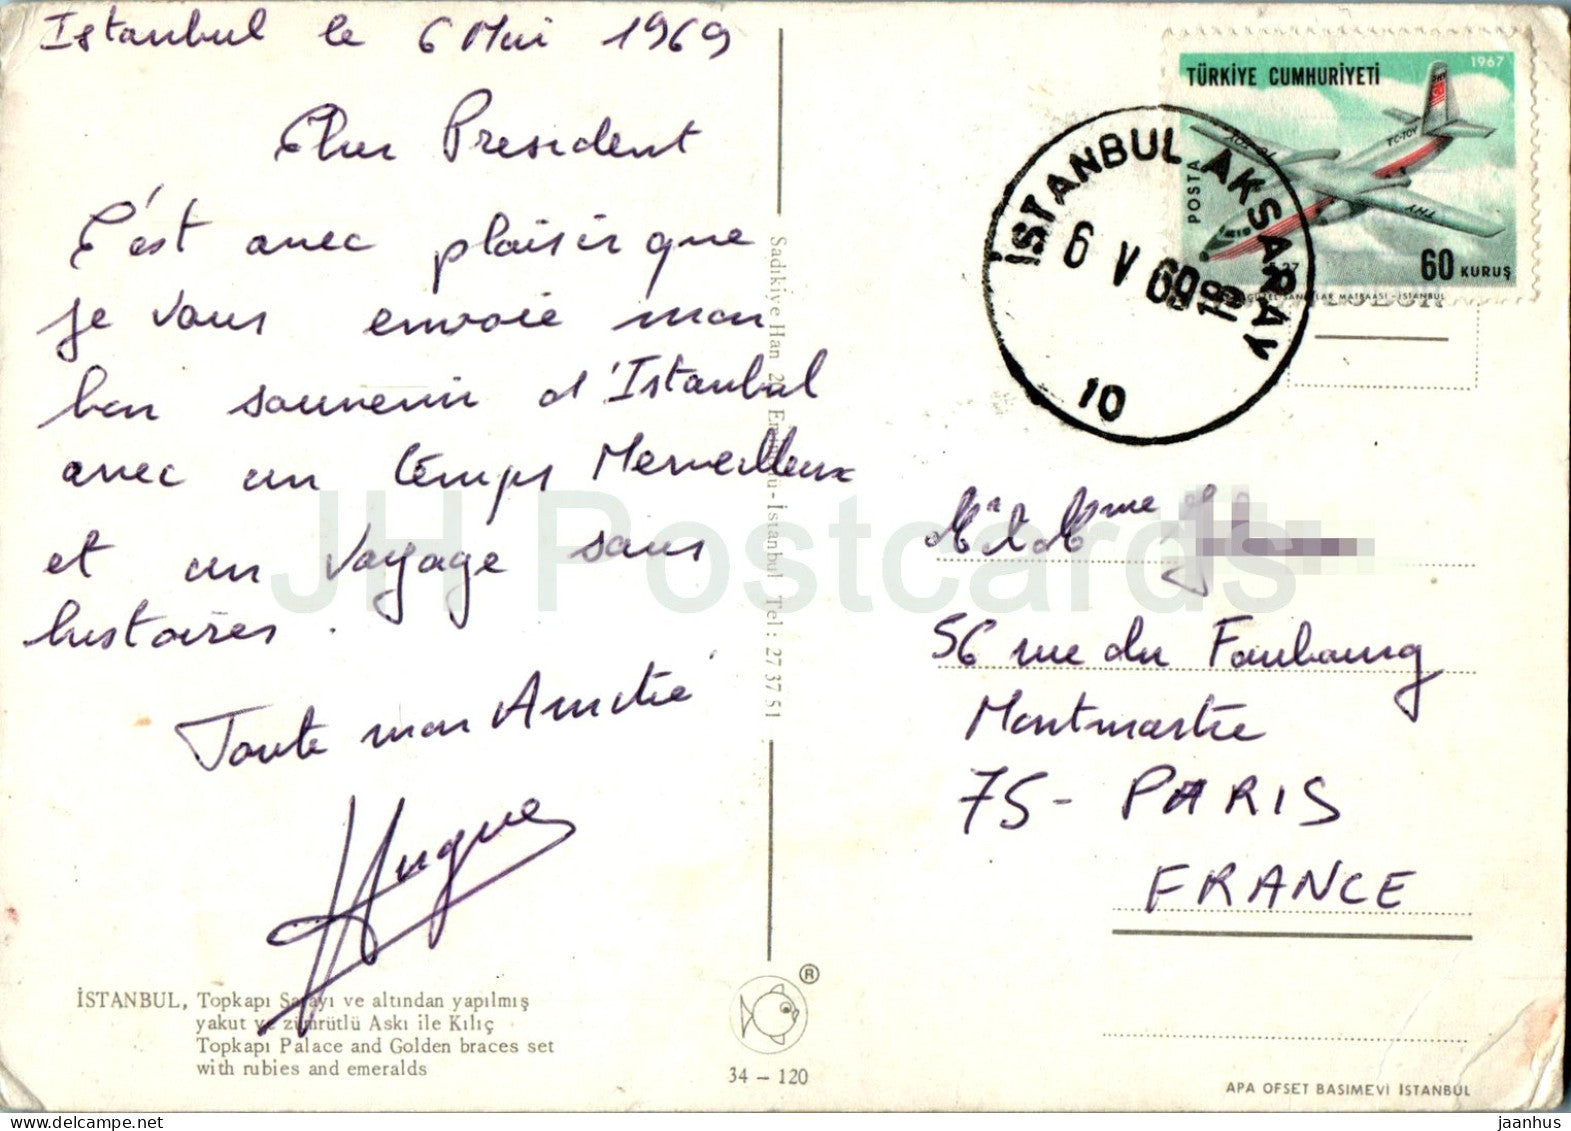 Istanbul le 6 Mai 1969
Cher President
C'est avec plaisir que
je vous envoie mon
bon souvenir d'Istanbul
avec un temps Merveilleux
et un voyage sans
histoires.
Toute mon Amitié
Hugues
İSTANBUL, Topkapı Sarayı ve altından yapılmış
yakut ve zümrütlü Askı ile Kılıç
Topkapı Palace and Golden braces set
with rubies and emeralds
Sadıkiye Han 20 -İstanbul Tel: 27 37 51
34 - 120
®
TÜRKİYE CUMHURİYETİ
1967
POSTA
TC-TOY
THY
60 KURUŞ
GÜZEL SANATLAR MATBAASI - İSTANBUL
İSTANBUL AKSARAY
6 V 69
10
Mr & Mme
56 rue du Faubourg
Montmartre
75- PARIS
FRANCE
APA OFSET BASIMEVİ İSTANBUL
JH Postcards
jaanhus